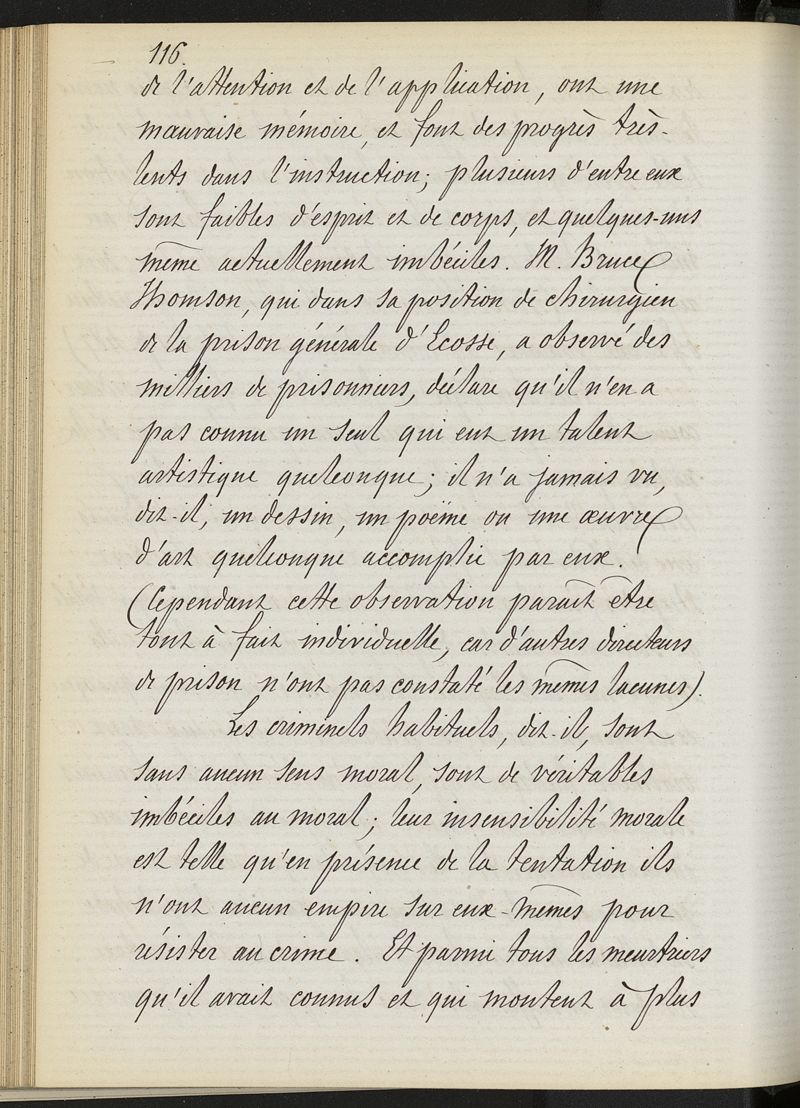 116.
de l'attention et de l'application, ont une
mauvaise mémoire, et font des progrès très-
lents dans l'instruction; plusieurs d'entre eux
sont faibles d'esprit et de corps, et quelques-uns
même actuellement imbéciles. M. Bruce
Thomson, qui dans sa position de chirurgien
de la prison générale d'Ecosse, a observé des
milliers de prisonniers, déclare qu'il n'en a
pas connu un seul qui eut un talent
artistique quelconque; il n'a jamais vu,
dit-il, un dessin, un poëme ou une œuvre
d'art quelconque accomplie par eux.
(Cependant cette observation paraît être
tout à fait individuelle, car d'autres directeurs
de prison n'ont pas constaté les mêmes lacunes).
Les criminels habituels, dit-il, sont
sans aucun sens moral, sont de véritables
imbéciles au moral; leur insensibilité morale
est telle qu'en présence de la tentation ils
n'ont aucun empire sur eux-mêmes pour
résister au crime. Et parmi tous les meurtriers
qu'il avait connus et qui montent à plus